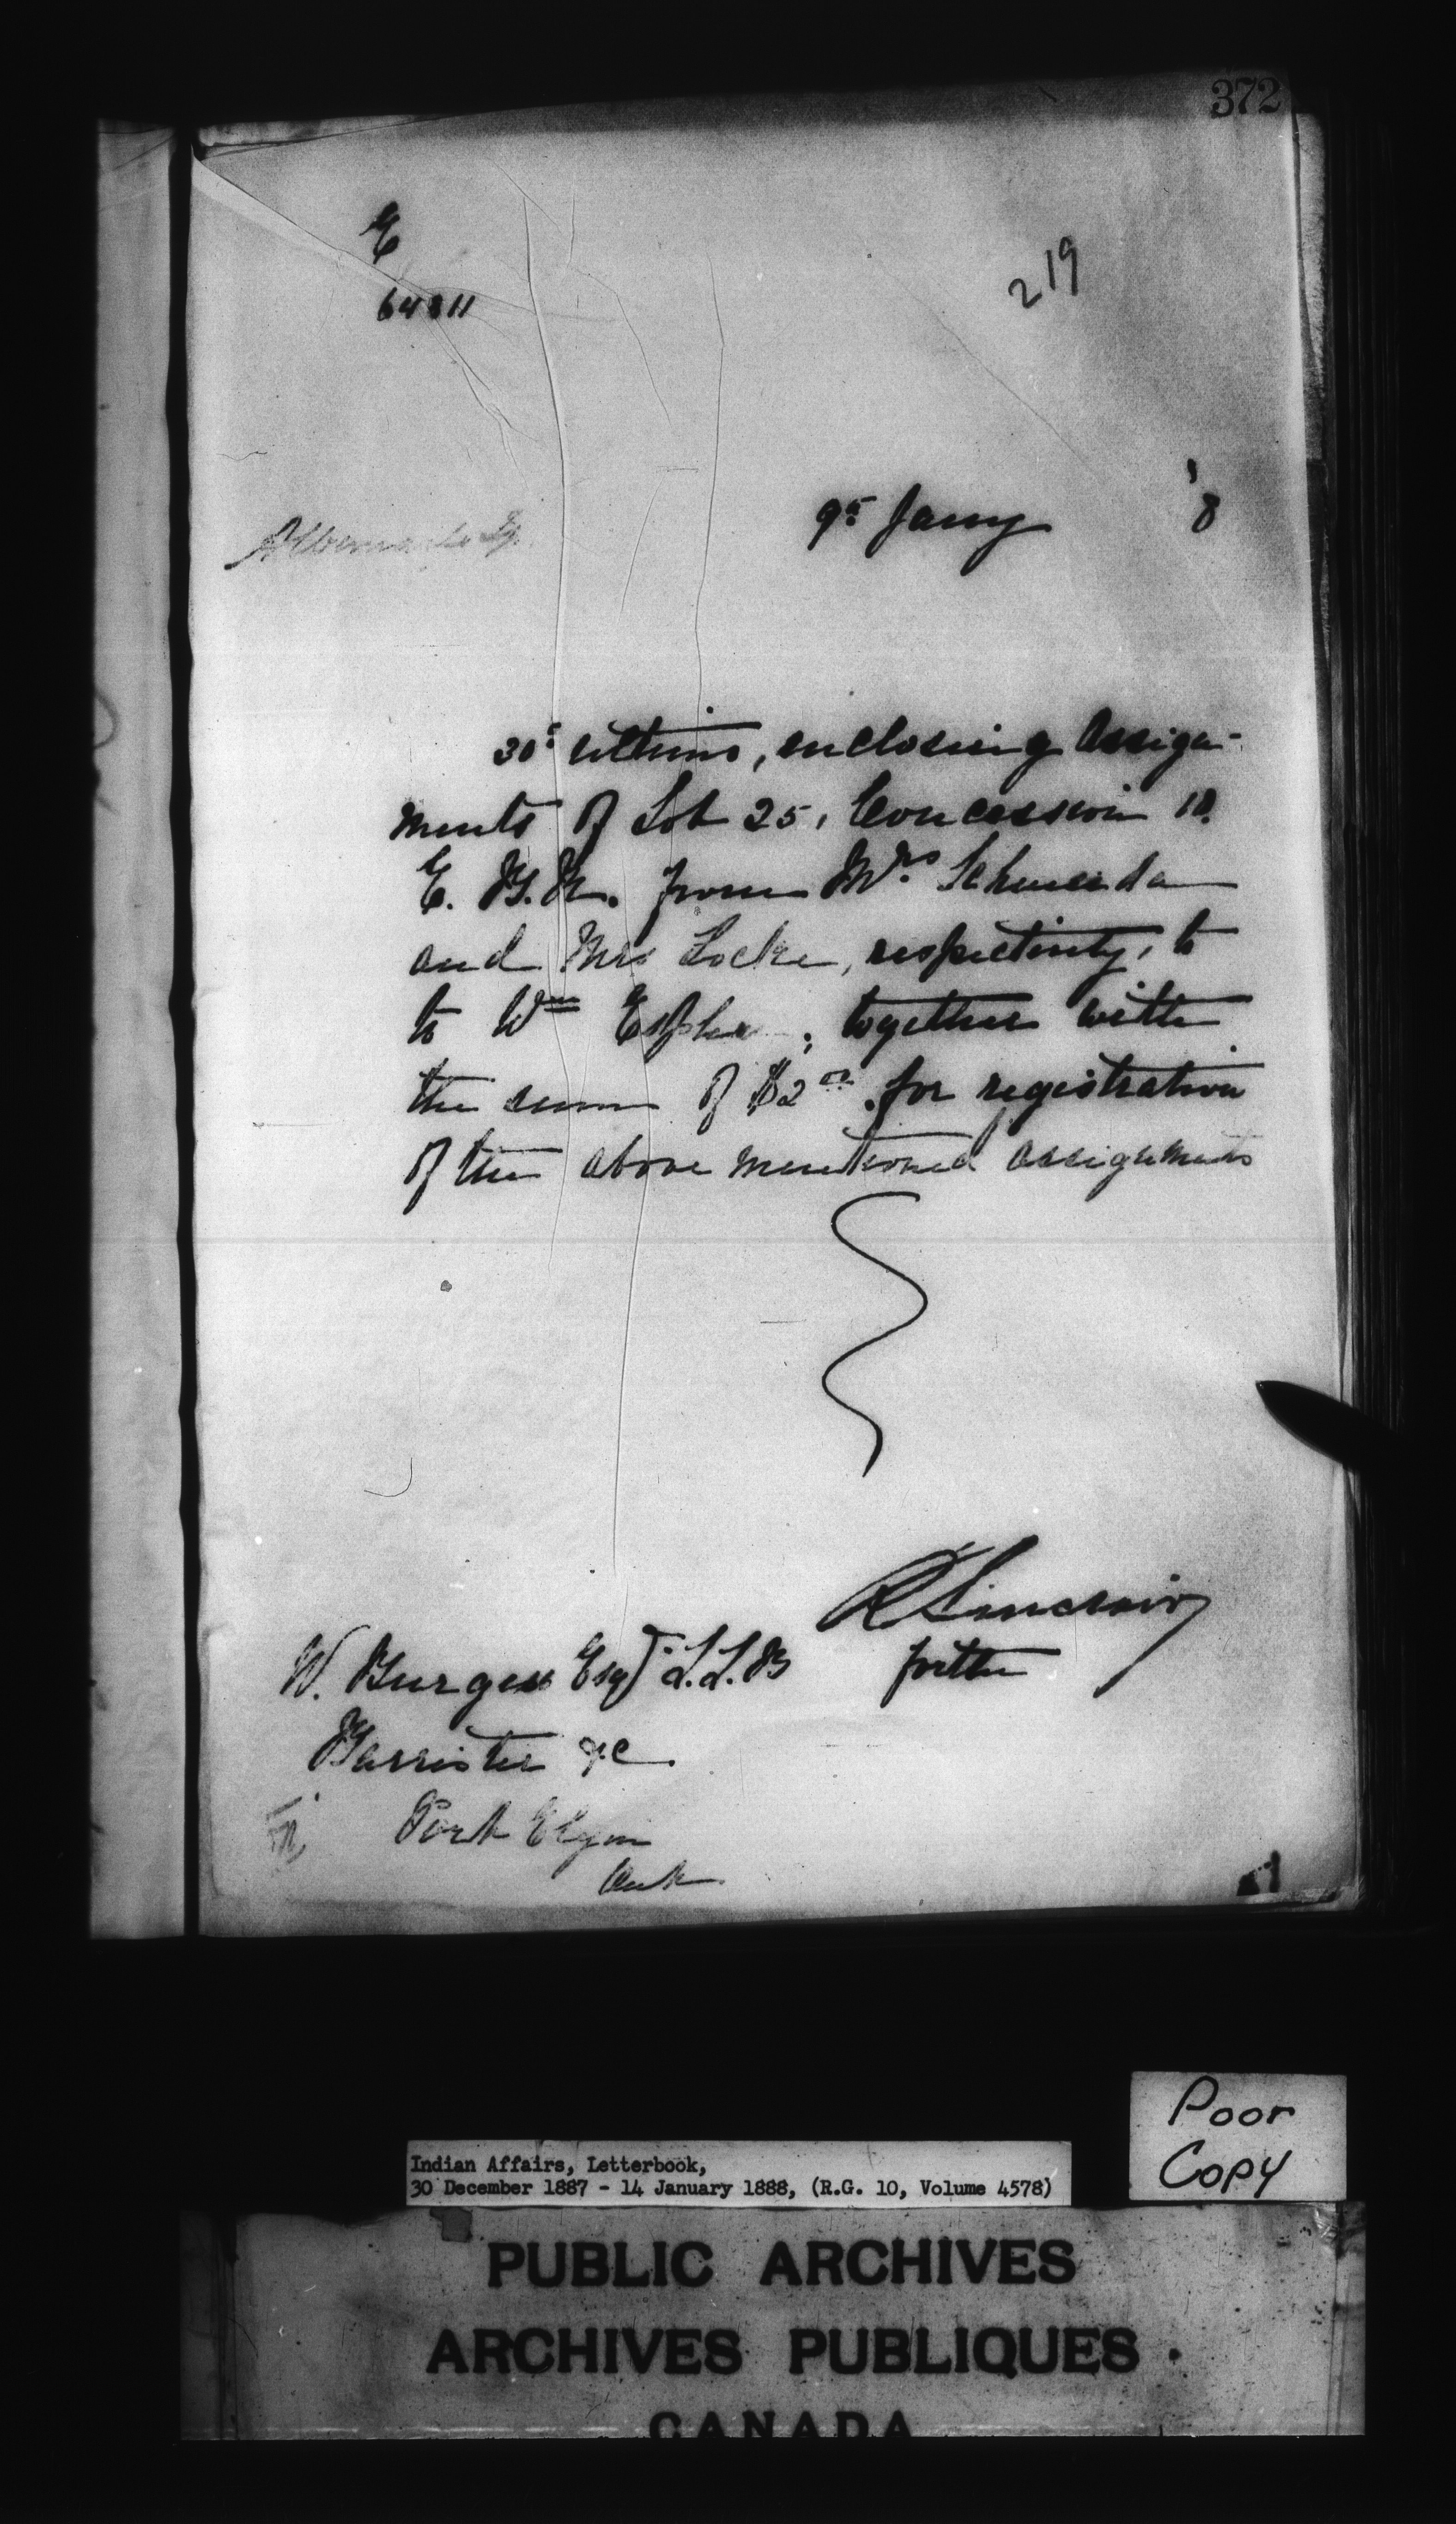 372
E
64811
219
9th Jany '8
Albemarle Tp.
30th ultimo, enclosing Assign-
ments of Lot 25, Concession 10.
E. B. R. from Mrs
and Mrs Locke, respectively, to
to Wm together with
the sum of $2.00 for registration
of the above mentioned assignments
R Sinclair
for the
W. Burgess Esqr L.L.B
Barrister &c
Port Elgin
Ont
Poor
Copy
Indian Affairs, Letterbook,
30 December 1887 - 14 January 1888, (R.G. 10, Volume 4578)
PUBLIC ARCHIVES
ARCHIVES PUBLIQUES
CANADA